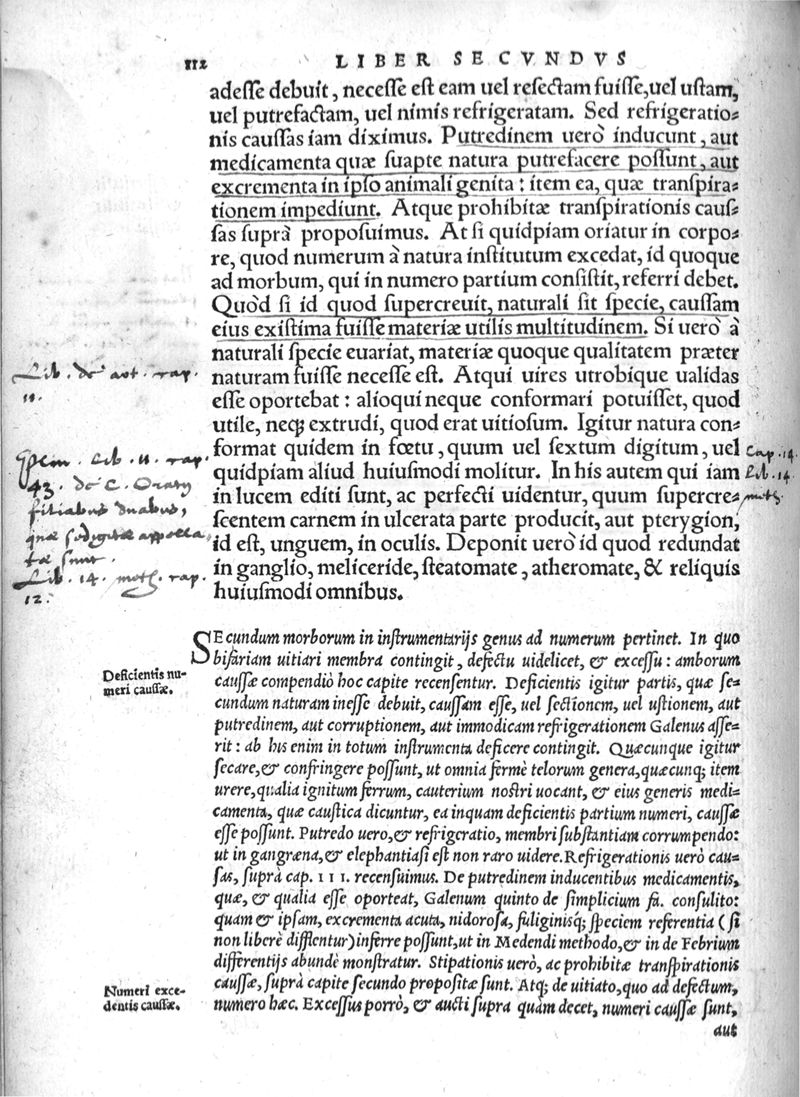 112 LIBER SECVNDVS
adesse debuit, necesse est eam uel resectam fuisse, uel ustam,
uel putrefactam, uel nimis refrigeratam. Sed refrigeratio-
nis caussas iam diximus. Putredinem uerò inducunt, aut
medicamenta quæ suapte natura putrefacere possunt, aut
excrementa in ipso animali genita: item ea, quæ transpira-
tionem impediunt. Atque prohibitæ transpirationis caus-
sas suprà proposuimus. At si quidpiam oriatur in corpo-
re, quod numerum à natura institutum excedat, id quoque
ad morbum, qui in numero partium consistit, referri debet.
Quòd si id quod supercreuit, naturali sit specie, caussam
eius existima fuisse materiæ utilis multitudinem. Si uerò à
naturali specie euariat, materiæ quoque qualitatem præter
naturam fuisse necesse est. Atqui uires utrobique ualidas
esse oportebat: alioqui neque conformari potuisset, quod
utile, neq; extrudi, quod erat uitiosum. Igitur natura con-
format quidem in fœtu, quum uel sextum digitum, uel
quidpiam aliud huiusmodi molitur. In his autem qui iam
in lucem editi sunt, ac perfecti uidentur, quum supercre-
scentem carnem in ulcerata parte producit, aut pterygion,
id est, unguem, in oculis. Deponit uerò id quod redundat
in ganglio, meliceride, steatomate, atheromate, & reliquis
huiusmodi omnibus.
Lib. de art. rap.
11.
Plin. Lib. 11. rap.
43. de C. Oraty
filiabus duabus,
quæ sedigitæ appella
tæ sunt.
Lib. 14. meth. rap.
12.
Cap. 14.
Lib. 14.
meth.
SEcundum morborum in instrumentarijs genus ad numerum pertinet. In quo
bifariam uitiari membra contingit, defectu uidelicet, & excessu: amborum
caussæ compendiò hoc capite recensentur. Deficientis igitur partis, quæ se-
cundum naturam inesse debuit, caussam esse, uel sectionem, uel ustionem, aut
putredinem, aut corruptionem, aut immodicam refrigerationem Galenus asse-
rit: ab his enim in totum instrumenta deficere contingit. Quæcunque igitur
secare, & confringere possunt, ut omnia fermè telorum genera, quæcunq; item
urere, qualia ignitum ferrum, cauterium nostri uocant, & eius generis medi-
camenta, quæ caustica dicuntur, ea inquam deficientis partium numeri, caussæ
esse possunt. Putredo uero, & refrigeratio, membri substantiam corrumpendo:
ut in gangræna, & elephantiasi est non raro uidere. Refrigerationis uerò cau-
sas, suprà cap. III. recensuimus. De putredinem inducentibus medicamentis,
quæ, & qualia esse oporteat, Galenum quinto de simplicium fa. consulito:
quam & ipsam, excrementa acuta, nidorosa, fuliginisq; speciem referentia (si
non liberè difflentur) inferre possunt, ut in Medendi methodo, & in de Febrium
differentijs abundè monstratur. Stipationis uerò, ac prohibitæ transpirationis
caussæ, suprà capite secundo propositæ sunt. Atq; de uitiato, quo ad defectum,
numero hæc. Excessus porrò, & aucti supra quàm decet, numeri caussæ sunt,
aut
Deficientis nu-
meri caussæ.
Numeri exce-
dentis caussæ.